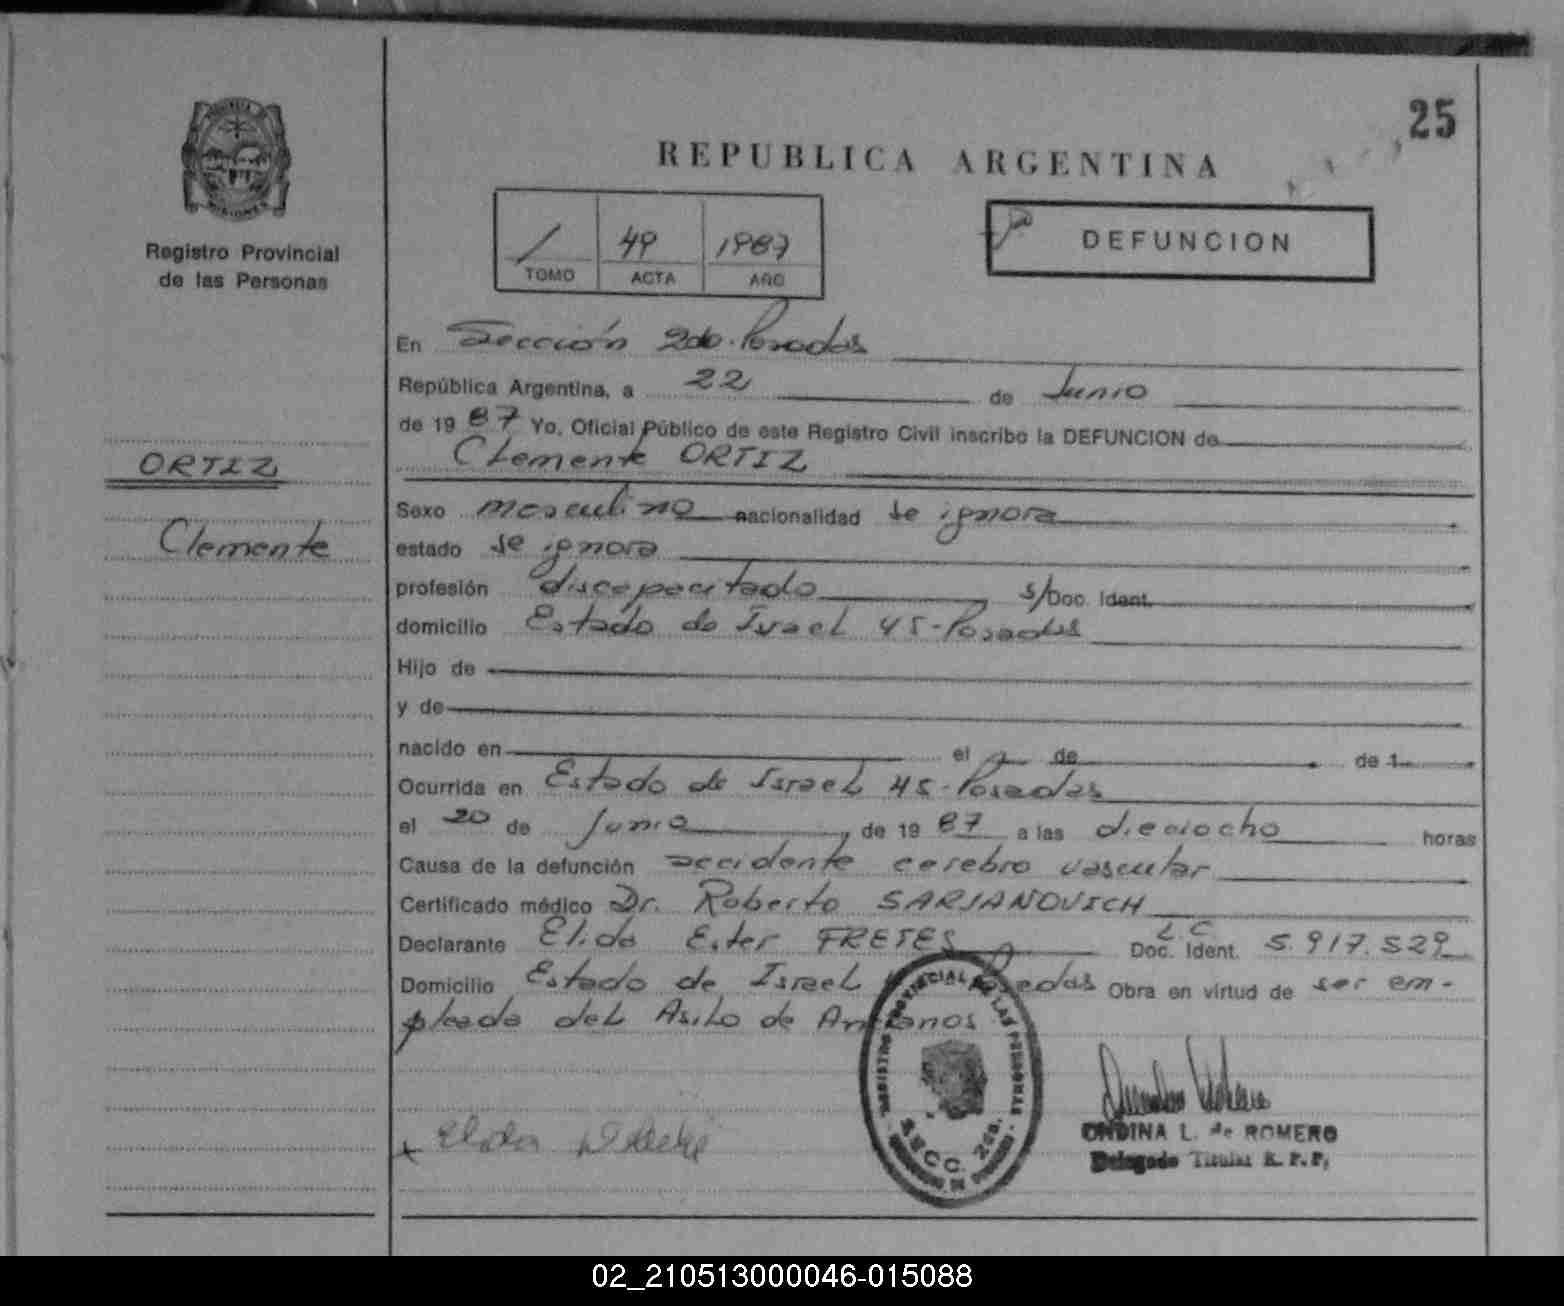 25
REPUBLICA ARGENTINA
PROVINCIA
MISIONES
Registro Provincial
de las Personas
1 49 1987
TOMO ACTA AÑO
DEFUNCION
En Sección 2da. Posadas
República Argentina, a 22 de Junio
de 1987 Yo, Oficial Público de este Registro Civil inscribo la DEFUNCION de
Clemente ORTIZ
ORTIZ
Clemente
Sexo masculino nacionalidad se ignora
estado se ignora
profesión discapacitado s/Doc. Ident.
domicilio Estado de Israel 45-Posadas
Hijo de
y de
nacido en el de de 1
Ocurrida en Estado de Israel 45-Posadas
el 20 de Junio de 1987 a las dieciocho horas
Causa de la defunción accidente cerebro vascular
Certificado médico Dr. Roberto SARJANOVICH
Declarante Elida Ester FRETES L.C. Doc. Ident. 5.917.529
Domicilio Estado de Israel Posadas Obra en virtud de ser em-
pleada del Asilo de Ancianos
REGISTRO PROVINCIAL DE LAS PERSONAS
SECC. 2da.
Elida
ONDINA L. de ROMERO
Delegado Titular R. P. P.
02_210513000046-015088